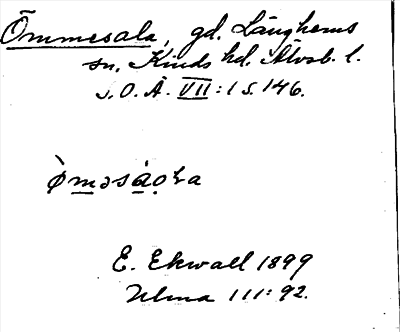 Ömmesala, gd. Länghems
sn. Kinds hd. Älvsb. l.
s. O. Ä. VII:1 s. 146.
E. Ekwall 1899
Ulma 111:92.